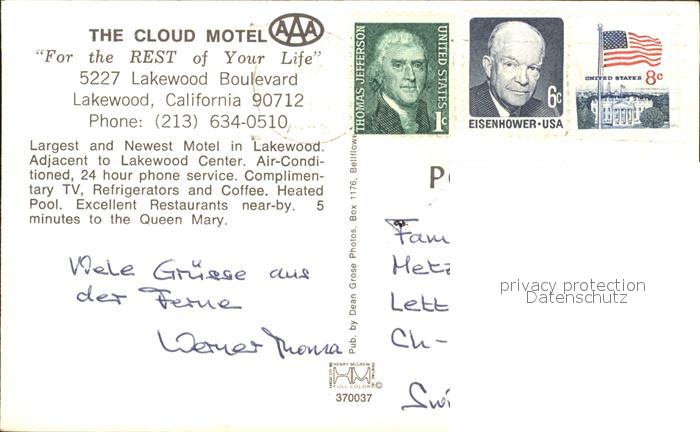 THE CLOUD MOTEL AAA
"For the REST of Your Life"
5227 Lakewood Boulevard
Lakewood, California 90712
Phone: (213) 634-0510
Largest and Newest Motel in Lakewood.
Adjacent to Lakewood Center. Air-Condi-
tioned, 24 hour phone service. Complimen-
tary TV, Refrigerators and Coffee. Heated
Pool. Excellent Restaurants near-by. 5
minutes to the Queen Mary.
Viele Grüsse aus
der Ferne
Werner Thoma
Pub. by Dean Grose Photos, Box 1176, Bellflower
HENRY McGREW
FULL COLOR
370037
THOMAS JEFFERSON
UNITED STATES
1c
6c
EISENHOWER·USA
UNITED STATES 8c
PO
Fam
Metz
Lett
Ch-
Swi
privacy protection
Datenschutz